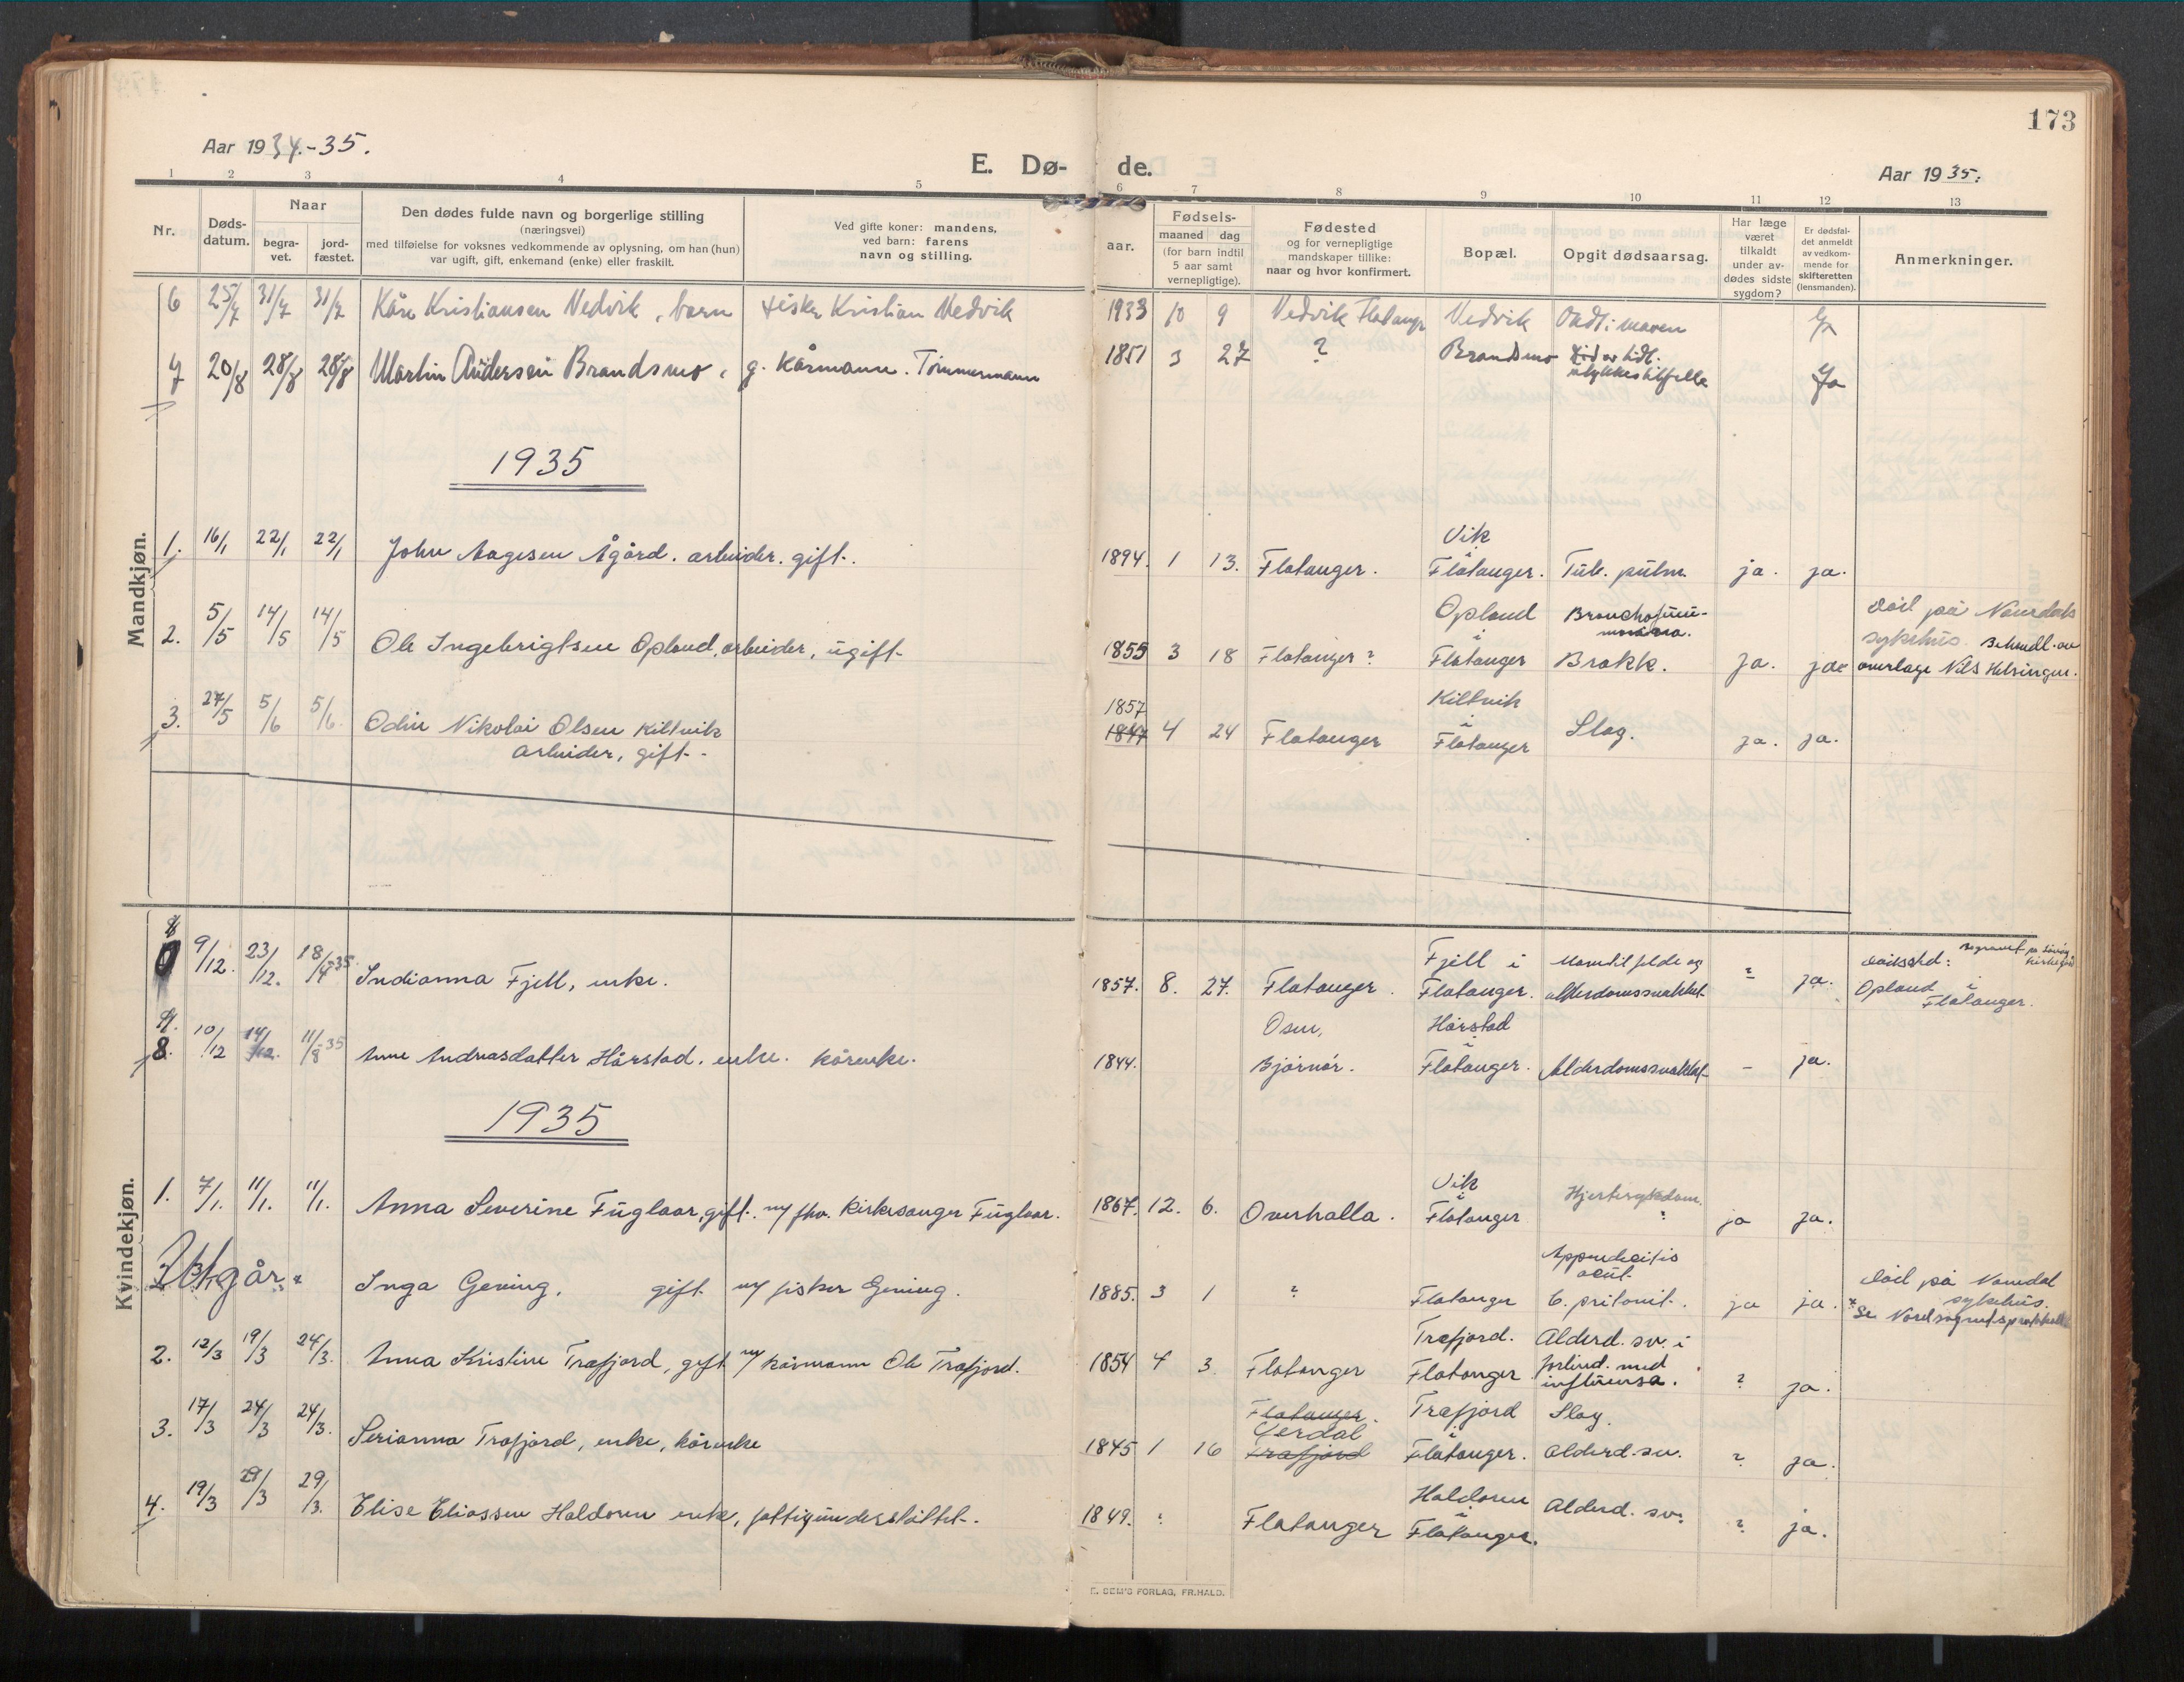 173
Aar 1934-35.
E. Dø- de.
Aar 1935.
1 2 3 4 5 6 7 8 9 10 11 12 13
Nr.
Døds-
datum.
Naar
begra-
vet.
jord-
fæstet.
Den dødes fulde navn og borgerlige stilling
(næringsvei)
med tilføielse for voksnes vedkommende av oplysning, om han (hun)
var ugift, gift, enkemand (enke) eller fraskilt.
Ved gifte koner: mandens,
ved barn: farens
navn og stilling.
aar.
Fødsels-
maaned dag
(for barn indtil
5 aar samt
vernepligtige).
Fødested
og for vernepligtige
mandskaper tillike:
naar og hvor konfirmert.
Bopæl.
Opgit dødsaarsag.
Har læge
været
tilkaldt
under av-
dødes sidste
sygdom?
Er dødsfal-
det anmeldt
av vedkom-
mende for
skifteretten
(lensmanden).
Anmerkninger.
Mandkjøn.
6 25/7 31/7 31/7 Kåre Kristiansen Vedvik, barn fisker Kristian Vedvik 1933 10 9 Vedvik Flatanger Vedvik
7 20/8 28/8 28/8 Martin Andersen Brandsmo, g. Kårmann. Tømmermann 1851 3 27 ? Brandsmo
ulykkestilfelle Ja
1935
1. 16/1 22/1 22/1 John Aagesen Ågård. arbeider. gift. 1894. 1 13. Flatanger. Vik i Flatanger. Tub. pulm. ja. ja.
2. 5/5 14/5 14/5 Ole Ingebrigtsen Opland, arbeider, ugift. 1855 3 18 Flatanger? Opland i Flatanger Brokk. ja. ja
Død på Namdals
sykehus. Behandl. av
overlæge Nils Helsingen.
3. 27/5 5/6 5/6 Odin Nikolai Olsen Kiltvik
arbeider, gift.
1857
1847 4 24 Flatanger Kiltvik i Flatanger Slag. ja. ja.
Kvindekjøn.
8 9/12. 23/12. 18/4-35. Indianna Fjell, enke. 1857. 8. 27. Flatanger. Fjell i Flatanger. alderdomssvakhet ? ja.
Dødssted:
Opland i
Flatanger.
9.
8. 10/12 14/12. 11/8-35 Anne Andreasdatter Hårstad. enke. kårenke. 1844. Osen, Bjørnør. Hårstad i Flatanger. Alderdomssvakhet - ja.
1935
1. 7/1. 11/1. 11/1. Anna Severine Fuglaar, gift. m/ fhv. Kirkesanger Fuglaar. 1867. 12. 6. Overhalla. Vik i Flatanger Hjertesykdom. ? ja ja.
Utgår. Inga Geving, gift m/ fisker Geving. 1885. 3 1 ? Flatanger Appendicitis
acut. ja ja.
Død på Namdal
sykehus.
Se Nordsognets protokoll
2. 12/3 19/3 24/3. Anna Kristine Træfjord, gift m/ kårmann Ole Træfjord. 1854 4 3 Flatanger Træfjord. Flatanger Alderd. sv. i
forbind. med
influensa. ? ja.
3. 17/3 24/3 24/3. Serianna Træfjord, enke, kårenke 1845 1 16 Flatanger. Træfjord Træfjord i Flatanger. Slag. Alderd. sv. ? ja.
4. 19/3 29/3 29/3. Elise Eliassen Haldoren enke, fattigunderstøttet. 1849. ? Flatanger Haldoren i Flatanger. Alderd. sv. ? ja.
E. SEM'S FORLAG, FR.HALD.